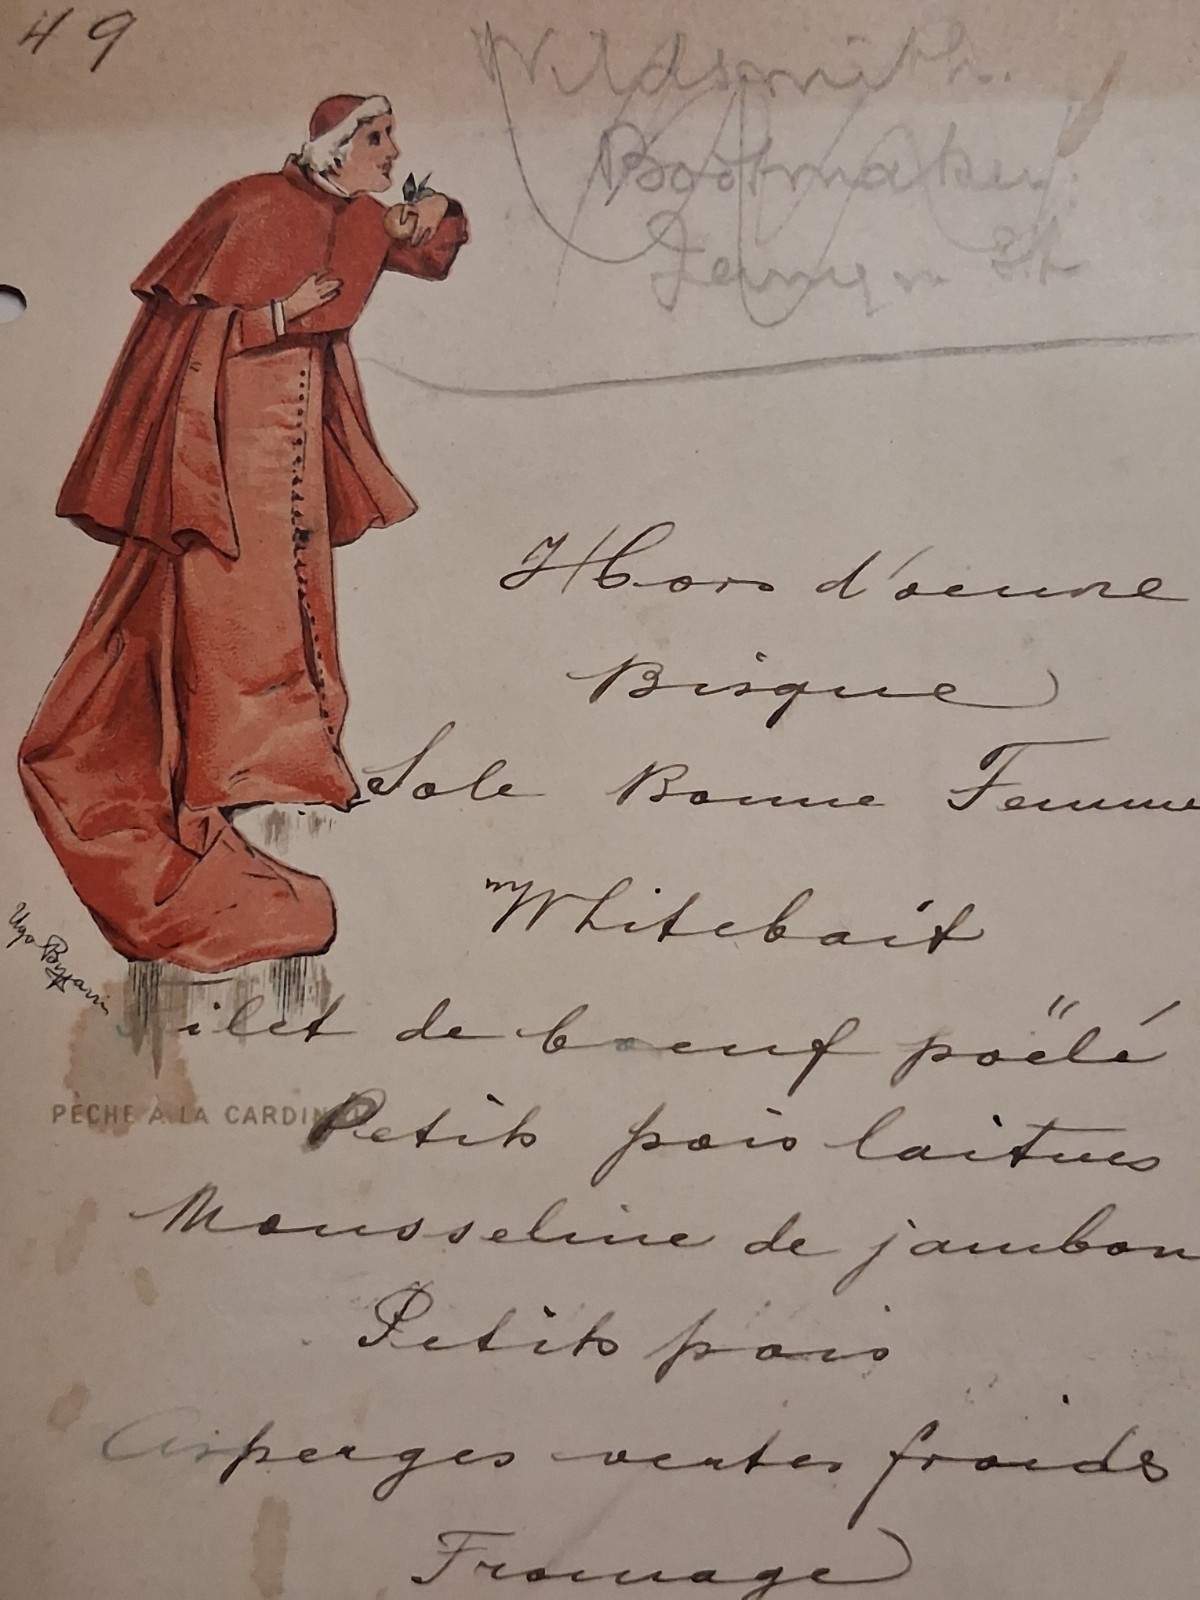 49
Wildsmith.
Bootmaker.
Jermyn St
Hors d'oeuvre
Bisque
Sole Bonne Femme
Whitebait
Filet de boeuf poëlé
PÊCHE À LA CARDIN
Petits pois laitues
Mousseline de jambon
Petits pois
Asperges vertes froids
Fromage
Ugo